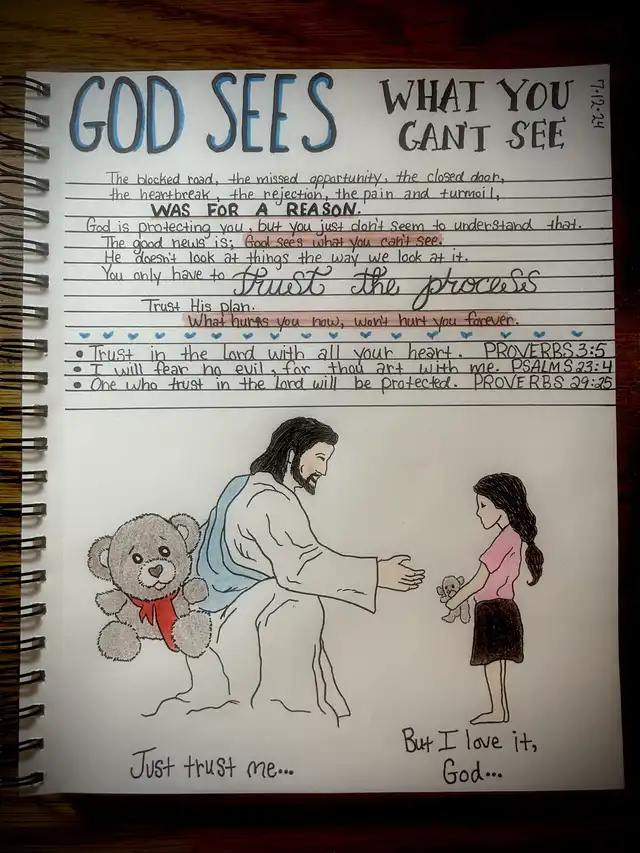 GOD SEES
WHAT YOU
CAN'T SEE
7-12-24
The blocked road, the missed opportunity, the closed door,
the heartbreak, the rejection, the pain and turmoil,
WAS FOR A REASON.
God is protecting you, but you just don't seem to understand that.
The good news is; God sees what you can't see.
He doesn't look at things the way we look at it.
You only have to trust the process
Trust His plan.
What hurts you now, won't hurt you forever.
• Trust in the Lord with all your heart. PROVERBS 3:5
• I will fear no evil, for thou art with me. PSALMS 23:4
• One who trust in the Lord will be protected. PROVERBS 29:25
Just trust me...
But I love it,
God...